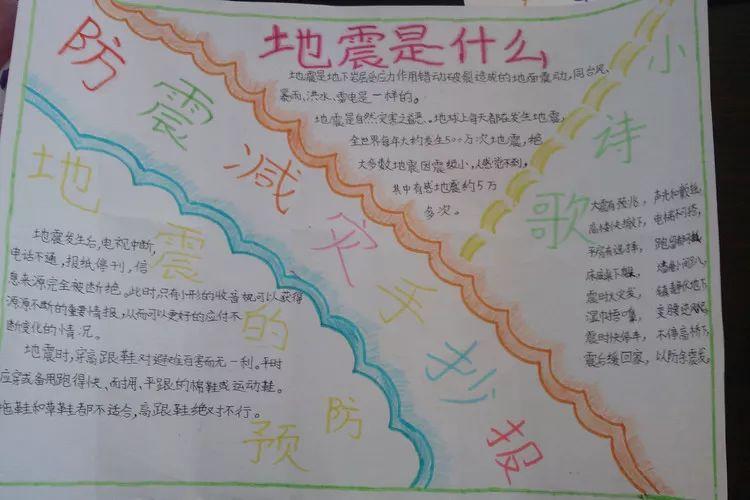 防震减灾手抄报
地震是什么
地震是地下岩层受应力作用错动破裂造成的地面震动,同台风、
暴雨、洪水、雷电是一样的。
地震是自然灾害之一。地球上每天都在发生地震,
全世界每年大约发生500万次地震,绝
大多数地震因震级小,人感觉不到,
其中有感地震约5万
多次。
小诗歌
大震有预兆,声光和
高楼快撤下,电梯不可搭,
平房避
床底桌下
震时火灾发,伏地下
湿巾捂口鼻,
震时快停车,不停高桥下
震后缓回家,以防余震
地震的预防
地震发生后,电视中断,
电话不通,报纸停刊,信
息来源完全被断绝。此时,只有小形的收音机可以获得
源源不断的重要情报,从而可以更好的应付不
断变化的情况。
地震时,穿高跟鞋对避难百害而无一利。平时
应穿或备用跑得快、耐拥、平跟的棉鞋或运动鞋。
拖鞋和草鞋都不适合,高跟鞋绝对不行。